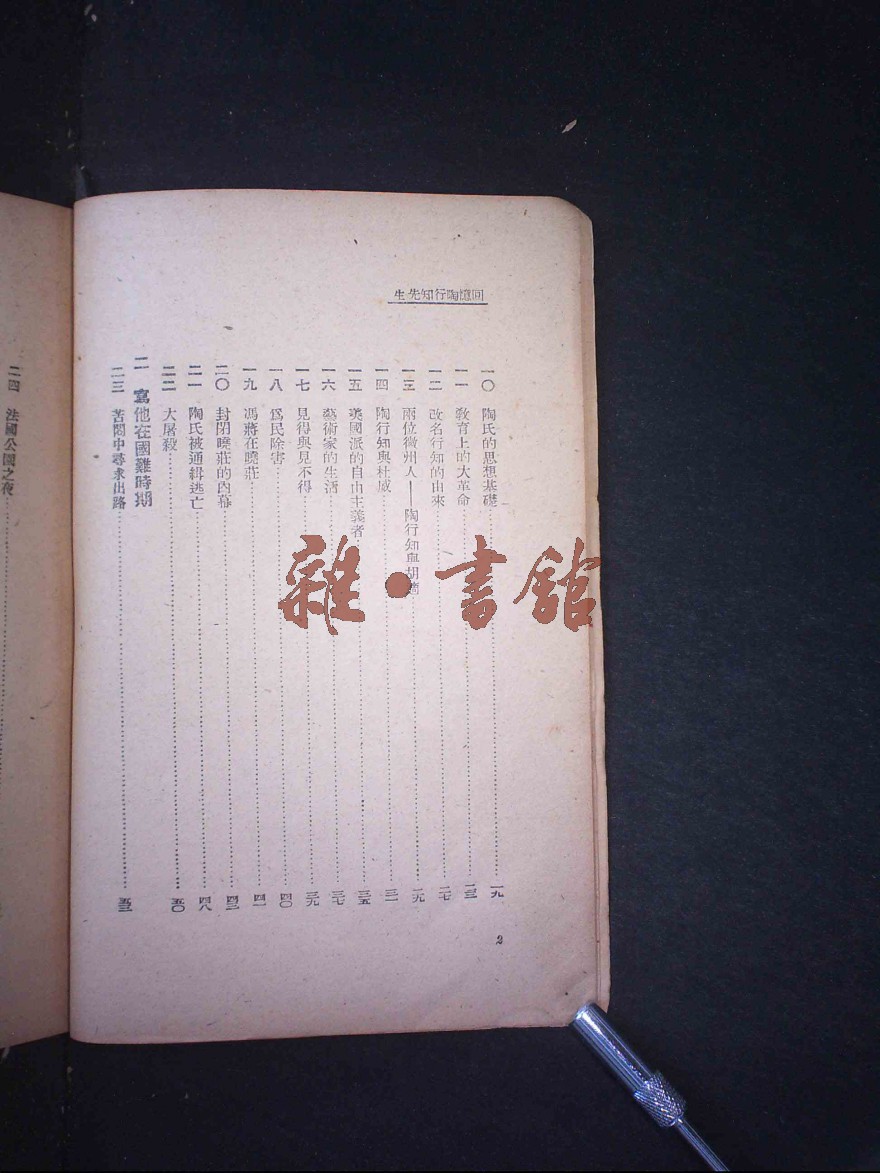 回憶陶行知先生
一〇 陶氏的思想基礎……一九
一一 教育上的大革命……二三
一二 改名行知的由來……二七
一三 兩位徽州人——陶行知與胡適……二九
一四 陶行知與杜威……三一
一五 美國派的自由主義者……三五
一六 藝術家的生活……三七
一七 見得與見不得……三九
一八 爲民除害……四〇
一九 馮蔣在曉莊……四一
二〇 封閉曉莊的內幕……四三
二一 陶氏被通緝逃亡……四八
二二 大屠殺……五〇
二 寫他在國難時期
二三 苦悶中尋求出路……五三
2
二四 法國公園之夜……
雜·書館